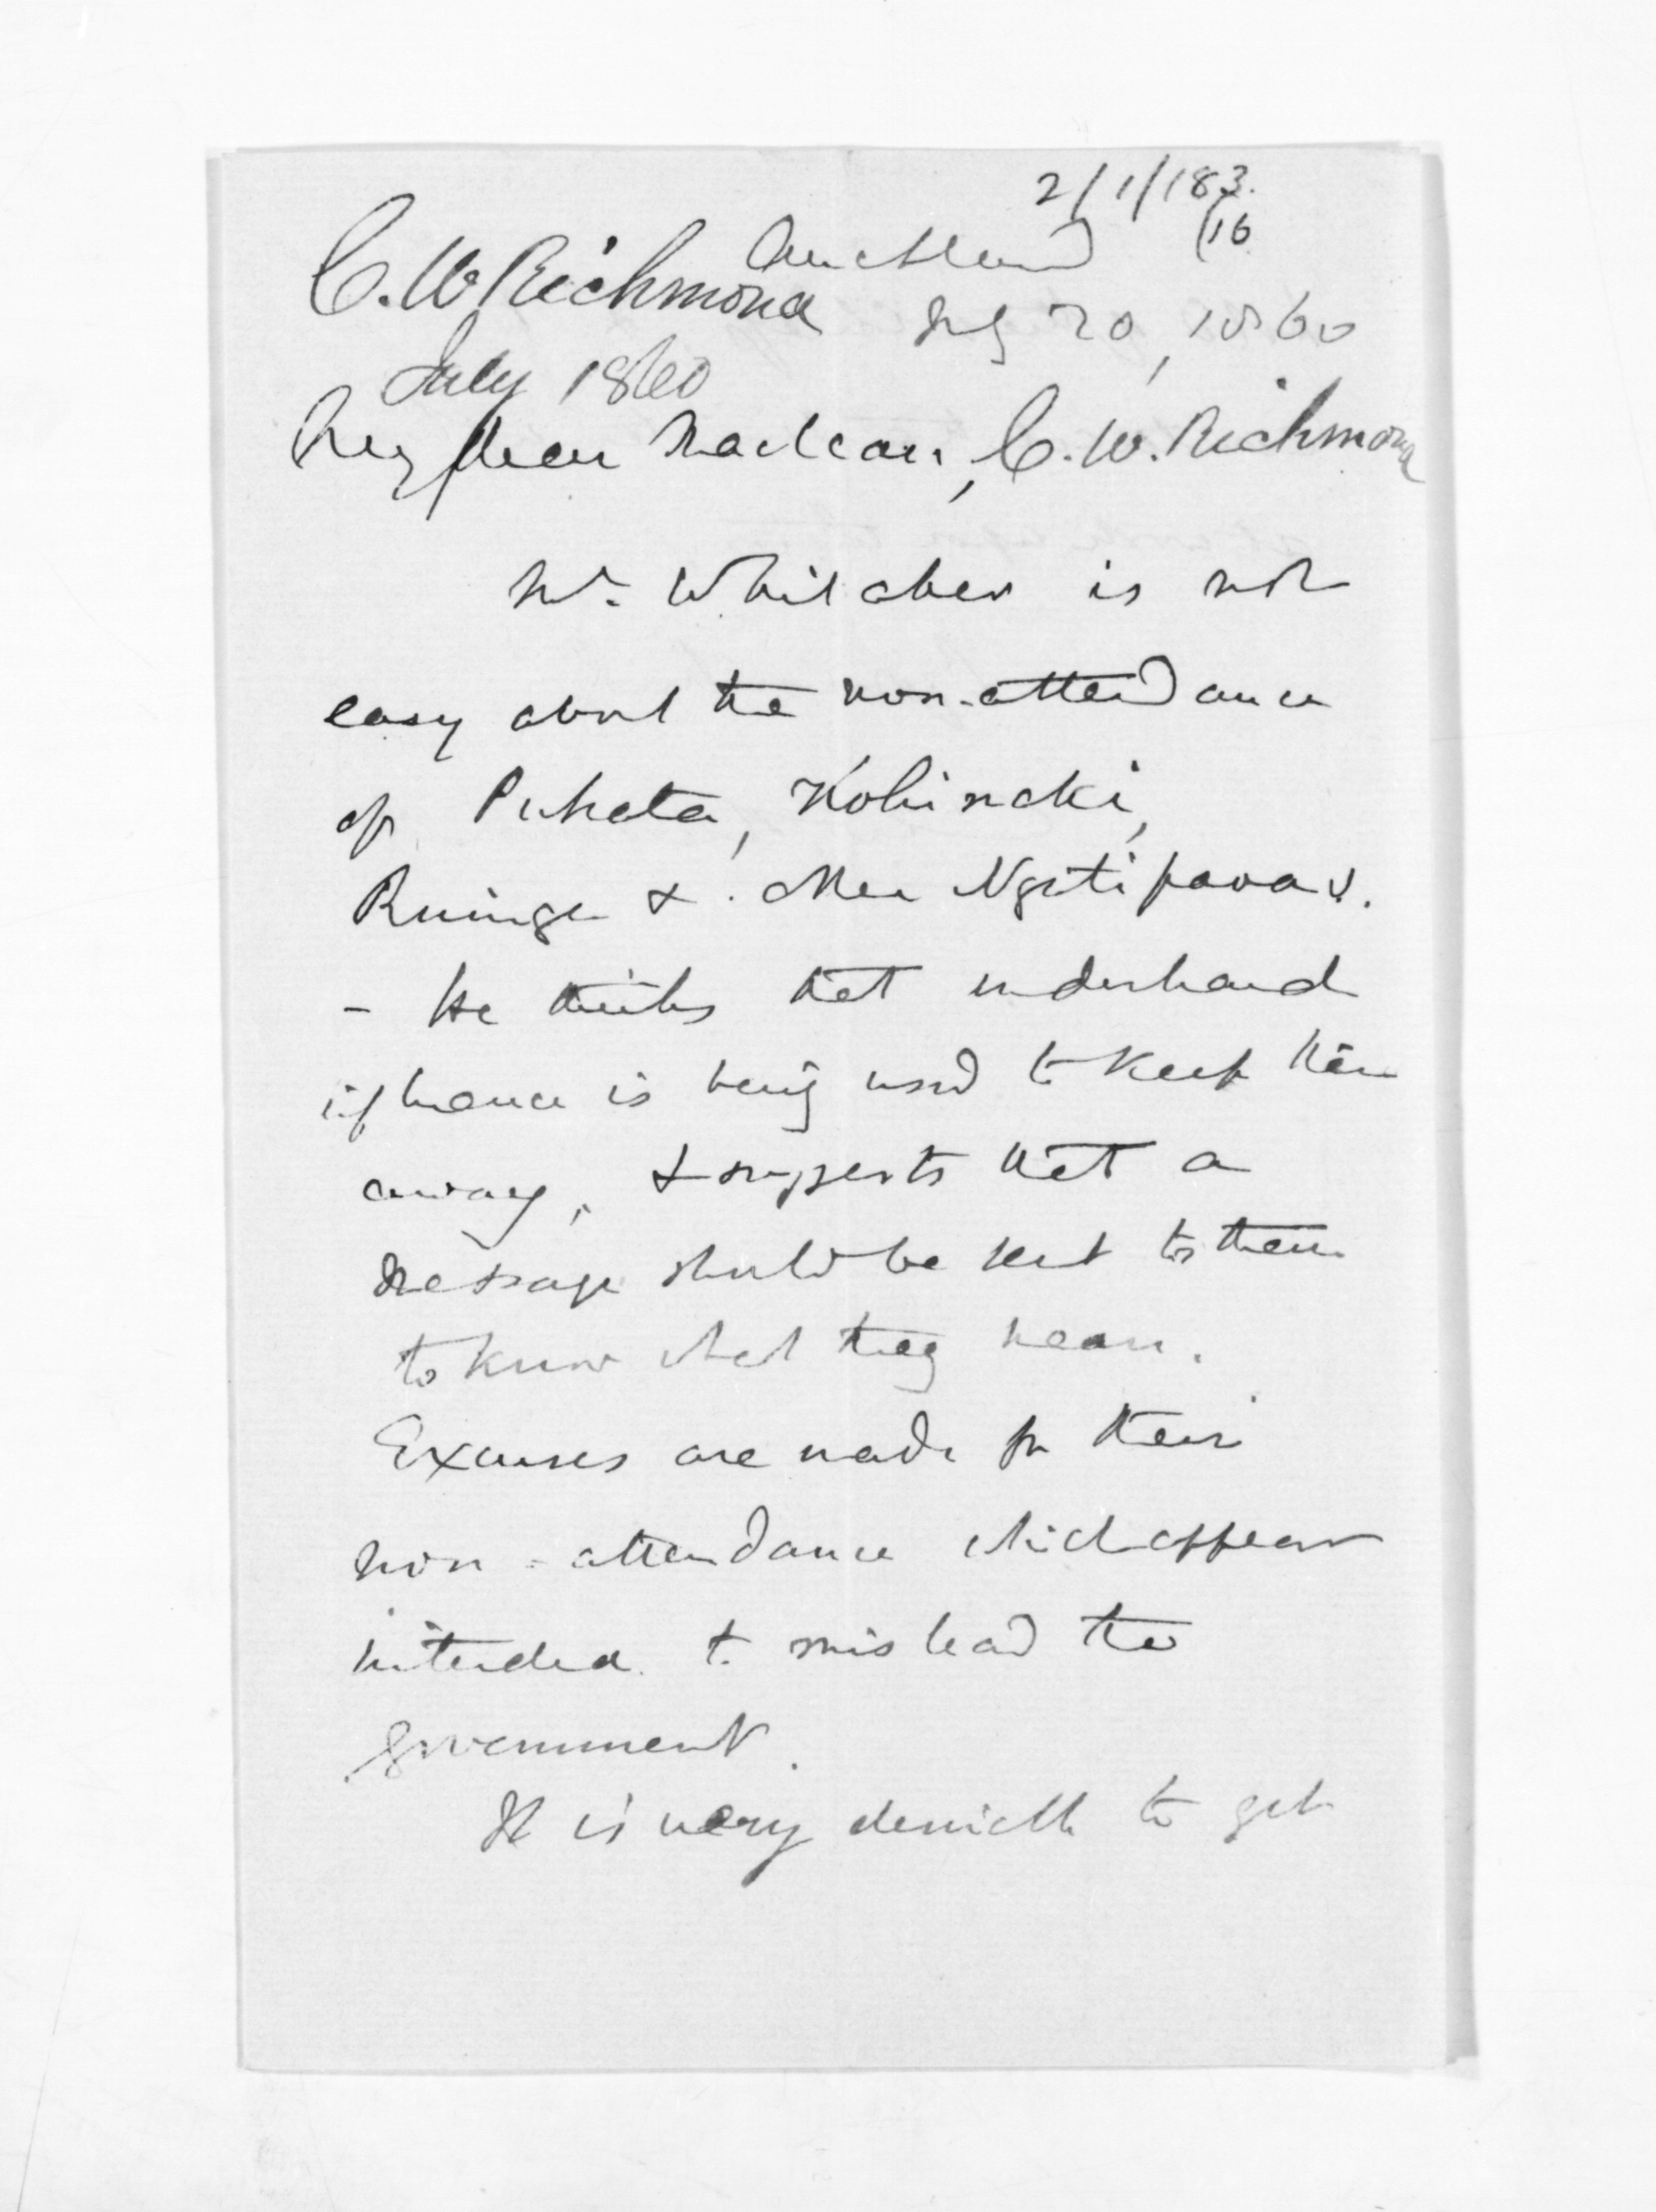 2/1/183.
(16
Auckland
C. W Richmond
July 20, 1860
July 1860
My dear Maclean, C. W. Richmond
Mr. Whitaker is not
easy about the non-attendance
of Pihata, Kohimoki,
Ruinga & other Ngatipaoas.
- He thinks that underhand
influence is being used to keep them
away, & suggests that a
message should be sent to them
to know what they mean.
Excuses are made for their
non-attendance which appear
intended to mislead the
government.
It is very desirable to get